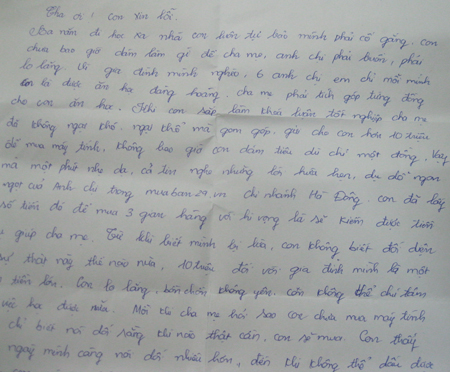 Cha ơi! Con xin lỗi.
Ba năm đi học xa nhà con luôn tự bảo mình phải cố gắng. Con
chưa bao giờ dám làm gì để cha mẹ, anh chị phải buồn, phải
lo lắng. Vì gia đình mình nghèo, 6 anh chị em chỉ mỗi mình
con là được ăn học đàng hoàng. Cha mẹ phải tích góp từng đồng
cho con ăn học. Khi con sắp làm khoá luận tốt nghiệp cha mẹ
đã không ngại khó, ngại khổ mà gom góp, gửi cho con hơn 10 triệu
để mua máy tính, không bao giờ con dám tiêu dù chỉ một đồng. Vậy
mà một phút nhẹ dạ, cả tin nghe những lời hứa hẹn, dụ dỗ ngon
ngọt của Anh chị trong muaban24.vn chi nhánh Hà Đông. Con đã lấy
số tiền đó để mua 3 gian hàng với hi vọng là sẽ kiếm được tiền
giúp cha mẹ. Từ khi biết mình bị lừa, con không biết đối diện
sự thật này thế nào nữa, 10 triệu đối với gia đình mình là một
tiền lớn. Con lo lắng, bồn chồn không yên. Con không thể chú tâm
việc học được nữa. Mỗi khi cha mẹ hỏi sao con chưa mua máy tính
chỉ biết nói dối rằng khi nào thật cần, con sẽ mua. Con thấy
ngày mình càng nói dối nhiều hơn, đến khi không thể dấu được